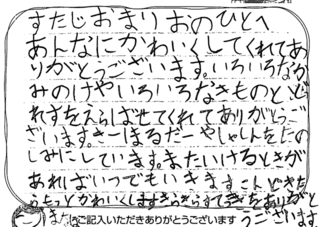 すたじおまりおのひとへ
あんなにかわいくしてくれてあ
りがとうございます。いろいろなか
みのけやいろいろなきものとど
れすをえらばせてくれてありがとうご
ざいます。きーほるだーやしゃしんをたの
しみにしています。またいけるときが
あればいつでもいきますこんどきた
らもっとかわいくしますきらきらすてきをありがと
うございます。
ご記入いただきありがとうございます